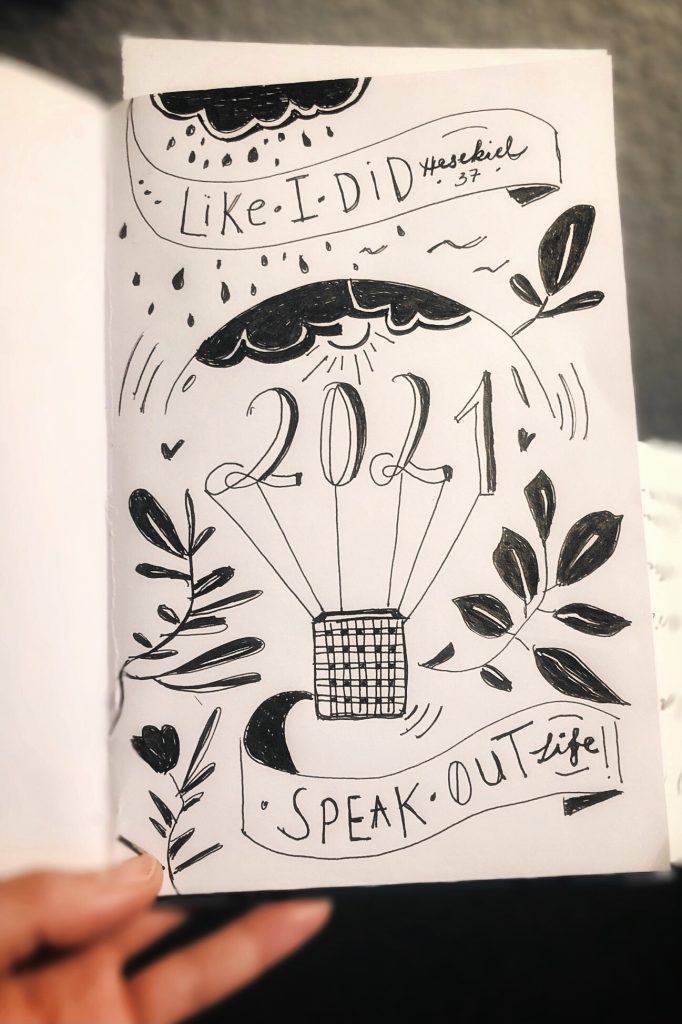 LiKe·I·DiD Hesekiel
·37·
2021
·SPEAK·OUT Life!!